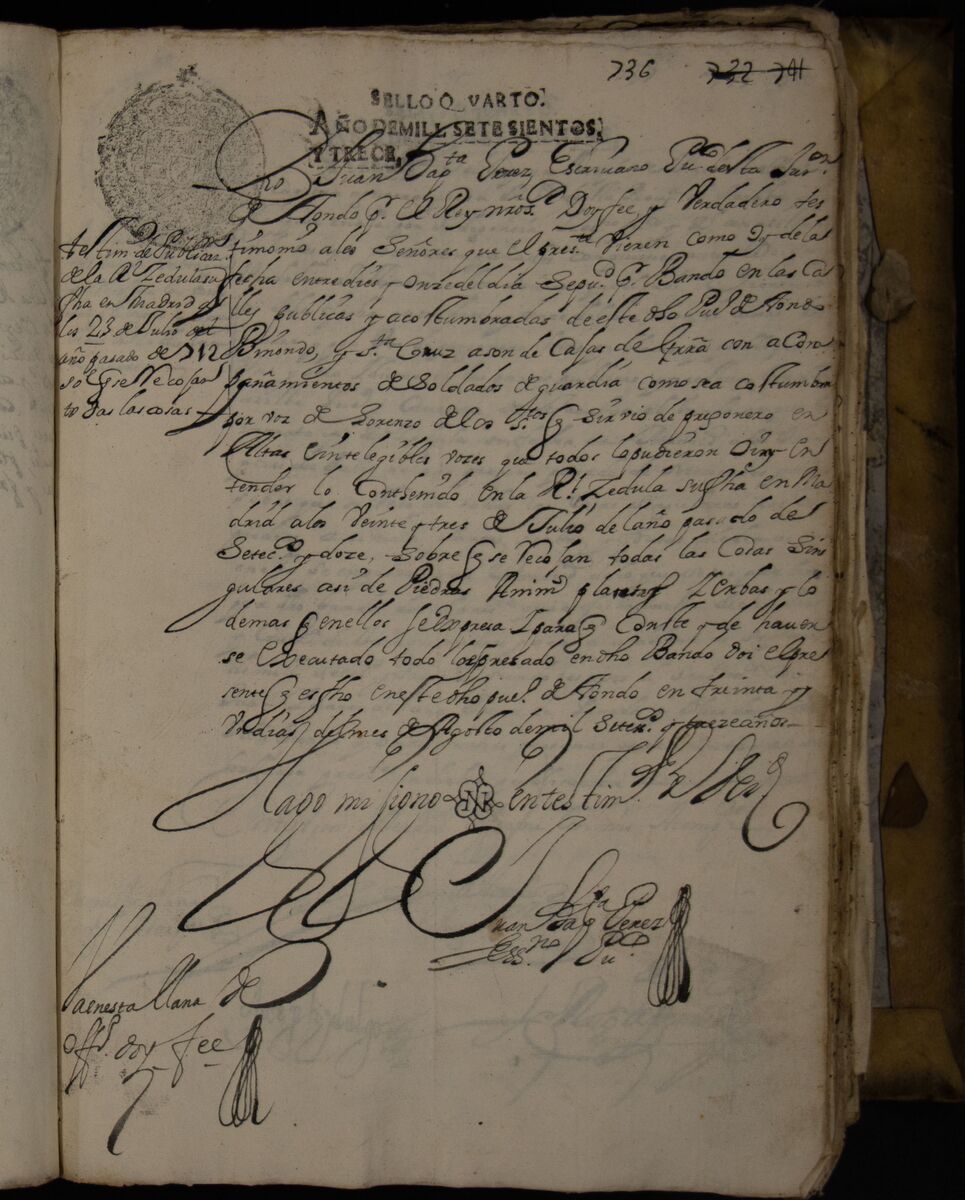 736 732 741
SELLO QVARTO.
AÑO DE MILL, SETESIENTOS,
Y TRECE,
Yo Juan Bapta Perez, Escriuano Puco desta Juron
de Tondo pr. el Rey nro sr. Doy fee, y Verdadero tes
timonio a los Señores que el presta Vieren como oy dela
fecha entre dies y onze del dia Sepud pr. Bando en las Ca
lles publicas y acostumbradas de este dho Puo de Tondo
Binondo, y Sta Cruz a son de Caxas de Grrã con acom
pañamientos de Soldados de guardia como sea costumbre
por voz de Lorenzo de los Stos q Sirvio de pregonero en
Altas e inteligibles vozes que todos lo pudieron oir y en
tender lo Conthenido en la Rl Zedula su fha en Ma
drid a los Veinte y tres de Julio del año pasado de
Setecos y doze, sobre q se recojan todas las Cosas Sin
gulares asi de Piedras Anims plantas Yerbas y lo
demas q en ellos se expresa Y para q Conste y de haver
se executado todo lo expresado en dho Bando doi el pre
sente q es fho en este dho pueo de Tondo en treinta y
Un dias del mes de Agosto de mil Setecos y treze años
Testimo de Publicaon
de la Rl Zedula su
fha en Madrid a
los 23 de Julio del
año pasado de 712
sobre q se Recojan
todas las cosas
Hago mi signo en testimo de Verd
Juan Bapta Perez
Essno Puco
Va en esta llana de
offo. doy fee